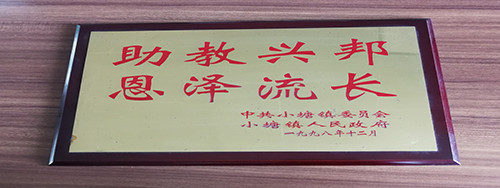 助教兴邦
恩泽流长
中共小塘镇委员会
小塘镇人民政府
一九九八年十二月